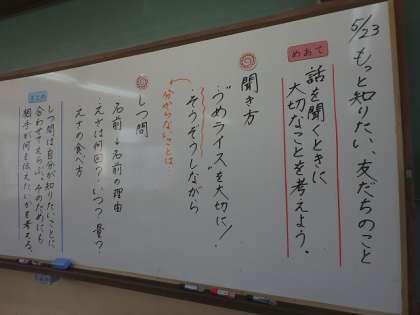 5/23 もっと知りたい、友だちのこと
めあて
話を聞くときに
大切なことを考えよう。
聞き方
・うめライスを大切に!
・そうぞうしながら
分からないことは…
しつ問
・名前と名前の理由
・えさは何回?いつ?量?
・えさの食べ方
まとめ
しつ問は自分が知りたいことに
合わせてえらぶ。そのためにも
相手が何を伝えたいかを考える。